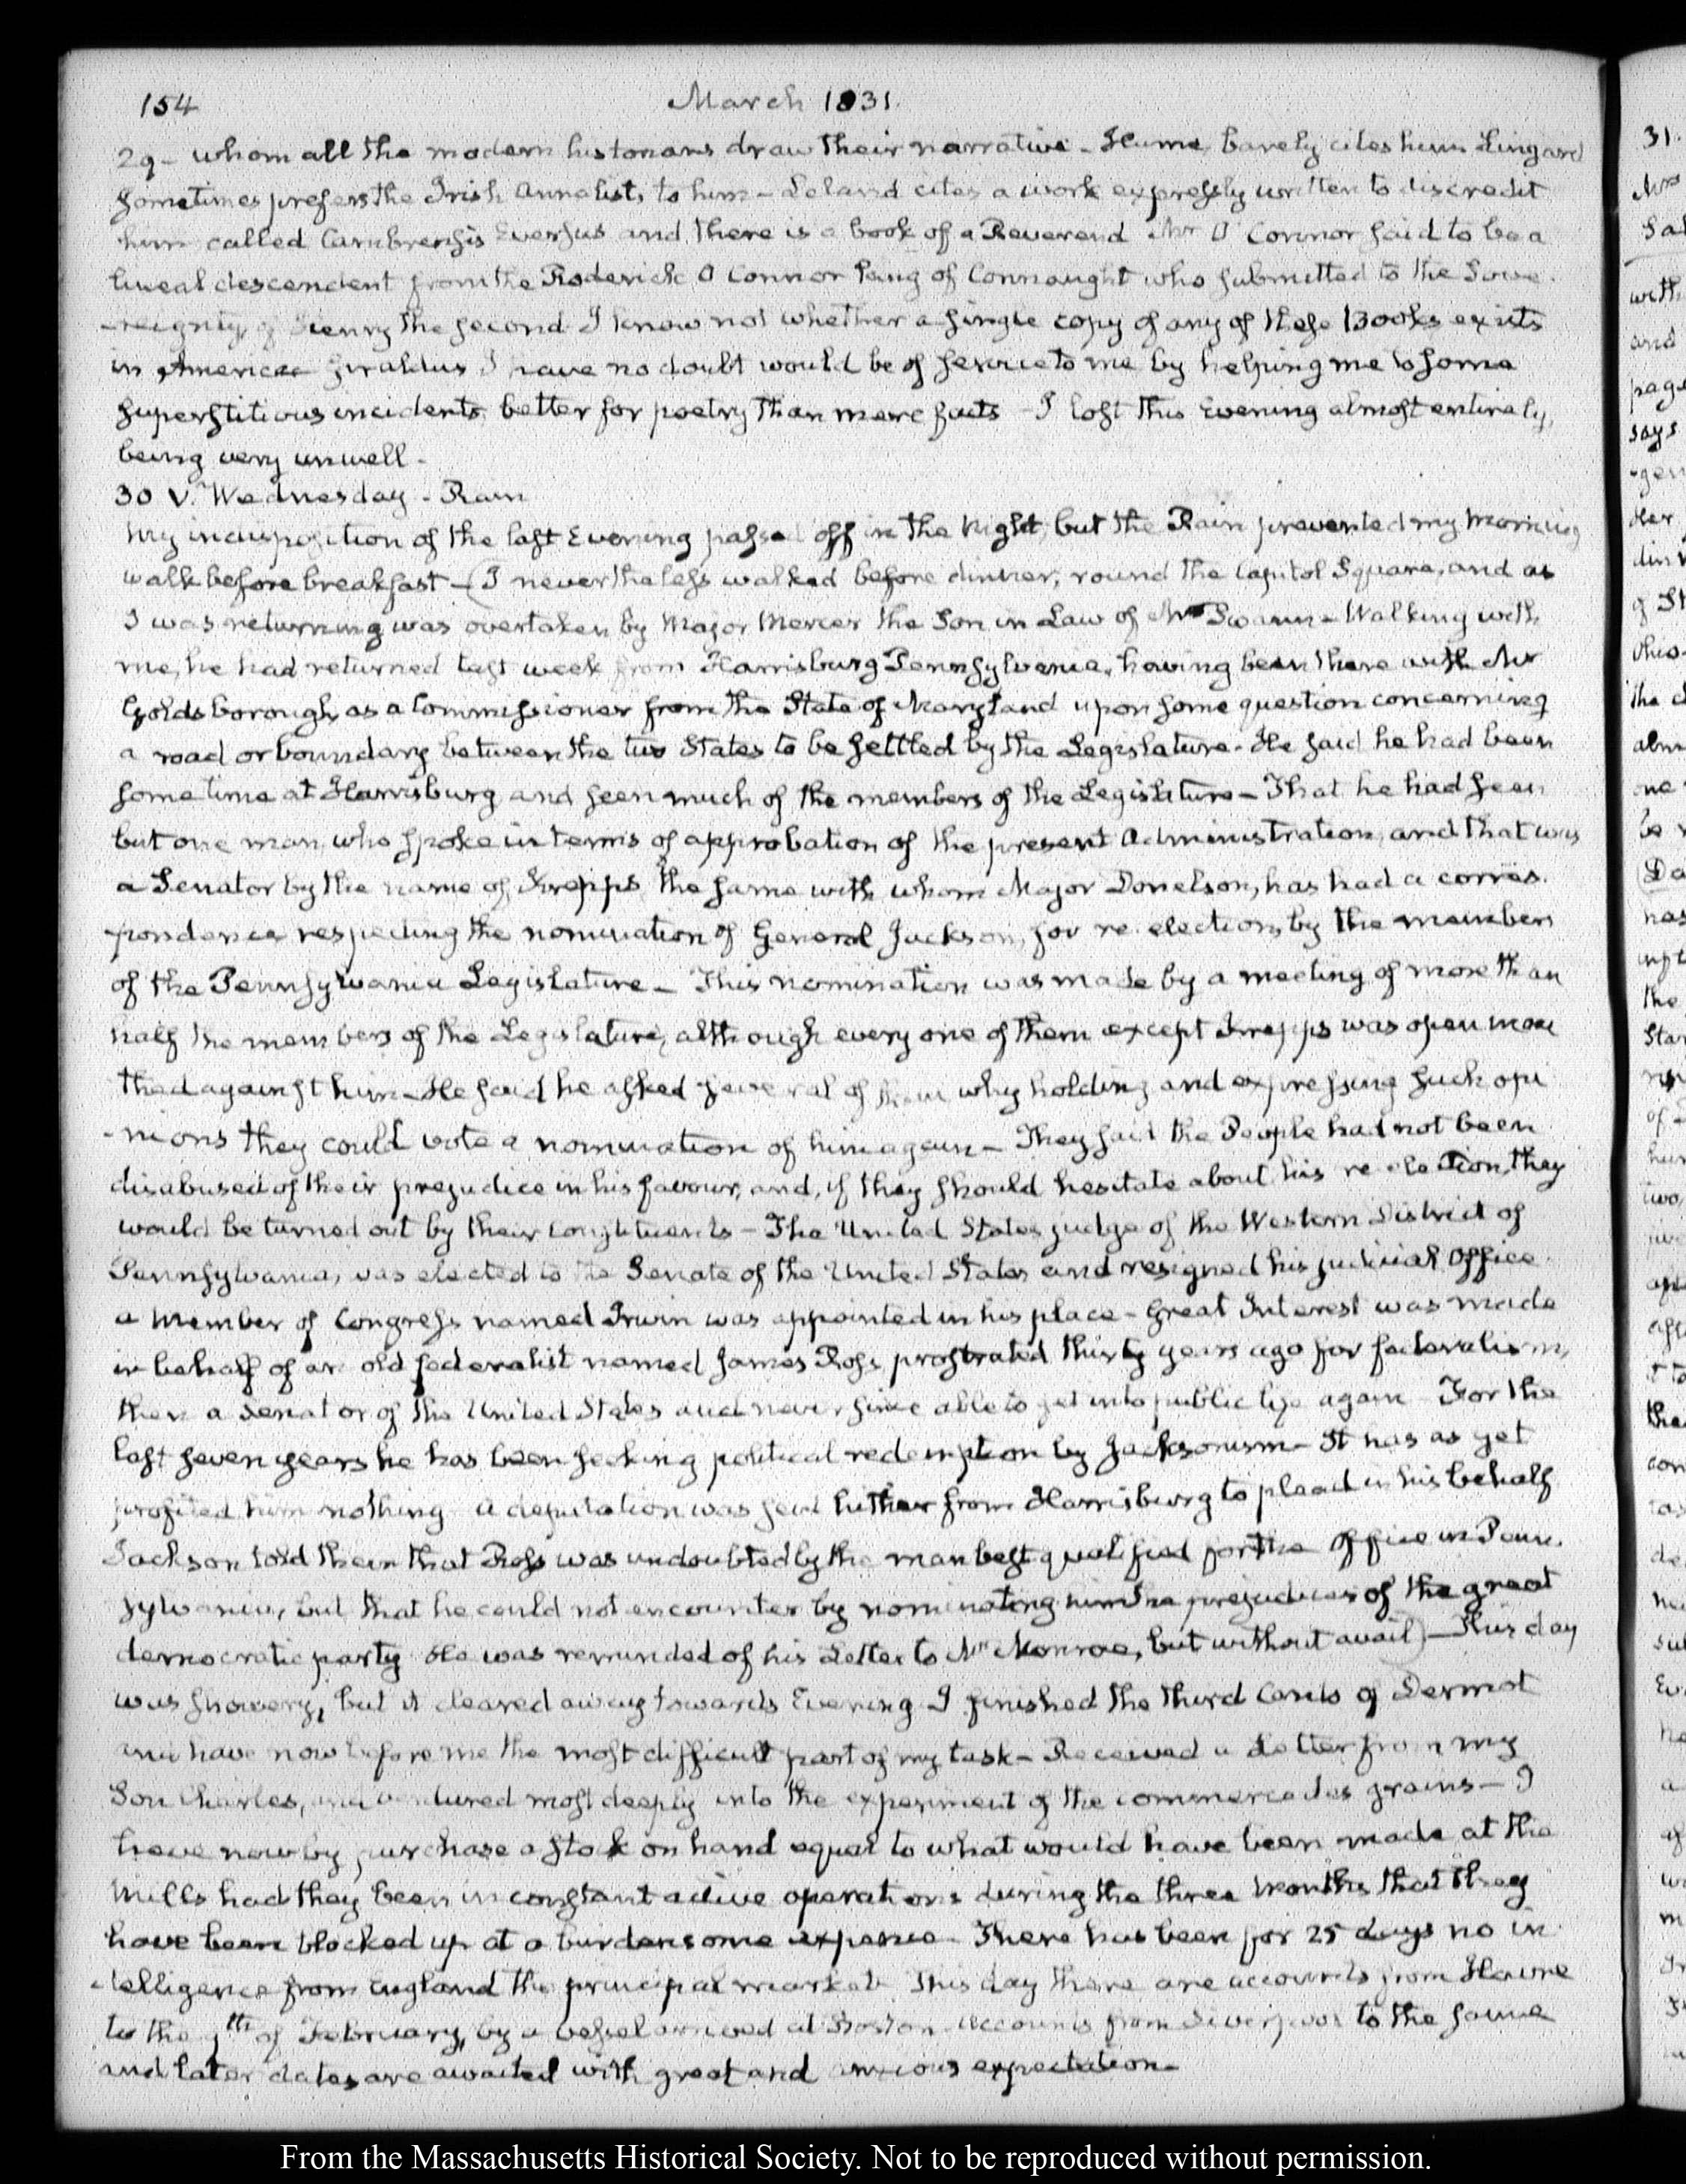 154
March 1831.
29 - whom all the modern historians draw their narrative - Hume, barely cites him Lingard
sometimes prefers the Irish Annalist, to him - Leland cites a work expressly written to discredit
him called Cambrensis Eversus and there is a book of a Reverend Mr O'Connor said to be a
lineal descendent from the Roderick O Connor King of Connaught who submitted to the Sove-
-reignty of Henry the second. I know not whether a single copy of any of these Books exists
in America Giraldus I have no doubt would be of service to me by helping me to some
superstitious incidents better for poetry than mere facts - I lost this Evening almost entirely,
being very unwell -
30 V. Wednesday - Rain
My indisposition of the last Evening passed off in the Night, but the Rain prevented my morning
walk before breakfast - (I nevertheless walked before dinner, round the Capitol Square, and as
I was returning was overtaken by Major Mercer the Son in Law of Mr Swann - Walking with
me, he had returned last week from Harrisburg Pennsylvania, having been there with Mr
Goldsborough, as a Commissioner from the State of Maryland upon some question concerning
a road or boundary between the two States to be settled by the Legislature - He said he had been
some time at Harrisburg and seen much of the members of the Legislature - That he had seen
but one man who spoke in terms of approbation of the present Administration, and that was
a Senator by the name of Krepps the same with whom Major Donelson, has had a corres-
-pondence respecting the nomination of General Jackson, for re-election by the members
of the Pennsylvania Legislature - This nomination was made by a meeting of more than
half the members of the Legislature, although every one of them except Krepps was open mou
thed against him - He said he asked several of them why holding and expressing such opi
-nions they could vote a nomination of him again - They said the People had not been
disabused of their prejudice in his favour, and, if they should hesitate about his re-election, they
would be turned out by their constituents - The United States judge of the Western District of
Pennsylvania, was elected to the Senate of the United States and resigned his judicial Office.
a Member of Congress named Irwin was appointed in his place - Great Interest was made
in behalf of an old federalist named James Ross, prostrated thirty years ago for federalism,
then a Senator of the United States and never since able to get into public life again - For the
last seven years he has been seeking political redemption by Jacksonism - It has as yet
profited him nothing a deputation was sent hither from Harrisburg to plead in his behalf
Jackson told them that Ross was undoubtedly the man best qualified for the Office in Penn-
sylvania, but that he could not encounter by nominating him the prejudices of the great
democratic party He was reminded of his Letter to Mr Monroe, but without avail) - This day
was showery, but it cleared away towards Evening I finished the third Canto of Dermot
and have now before me the most difficult part of my task - Received a Letter from my
Son Charles, and ventured most deeply into the experiment of the commerce des grains - I
have now by purchase a stock on hand equal to what would have been made at the
Mills had they been in constant active operations during the three Months that they
have been blocked up at a burdensome expense - There has been for 25 days no in
-telligence from England the principal market. This day there are accounts from Havre
to the 9th of February, by a vessel arrived at Boston - Accounts from Liverpool to the same
and later dates are awaited with great and anxious expectation -
From the Massachusetts Historical Society. Not to be reproduced without permission.